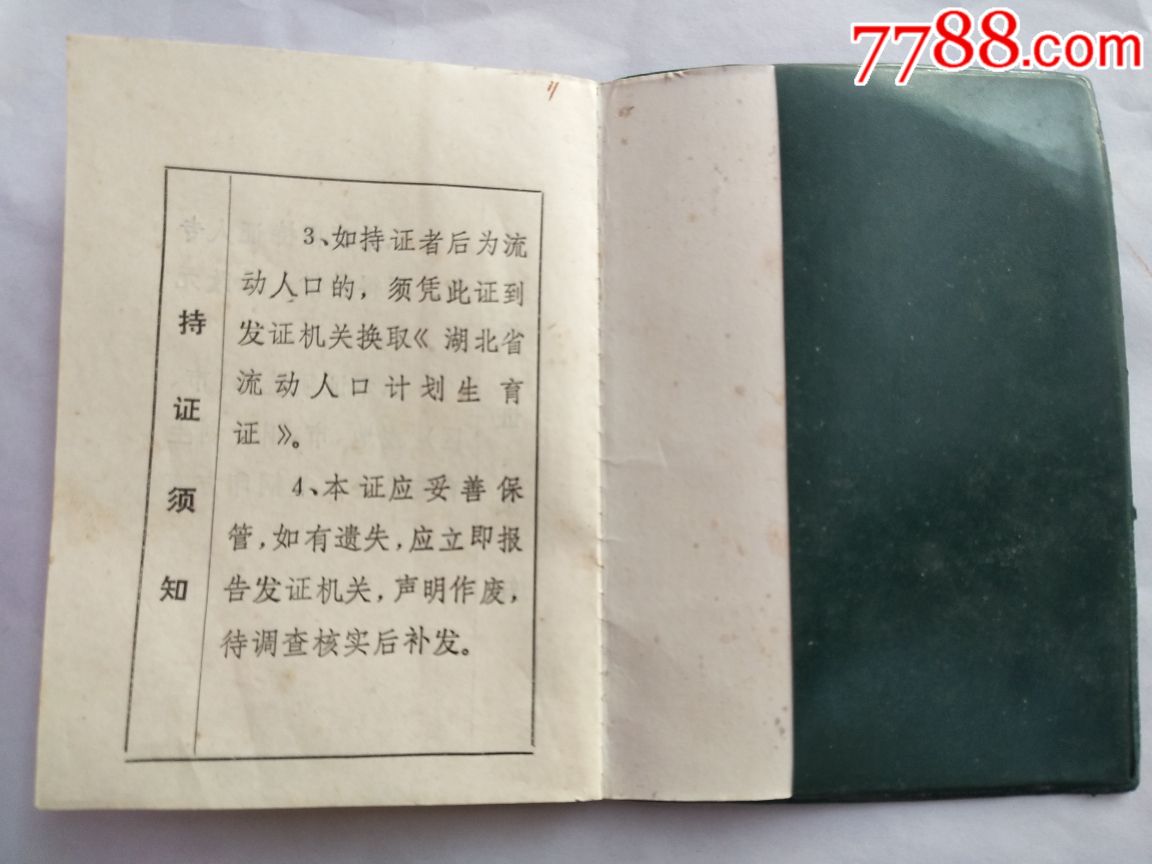 7788.com
持证须知
3、如持证者后为流
动人口的，须凭此证到
发证机关换取《湖北省
流动人口计划生育
证》。
4、本证应妥善保
管，如有遗失，应立即报
告发证机关，声明作废，
待调查核实后补发。